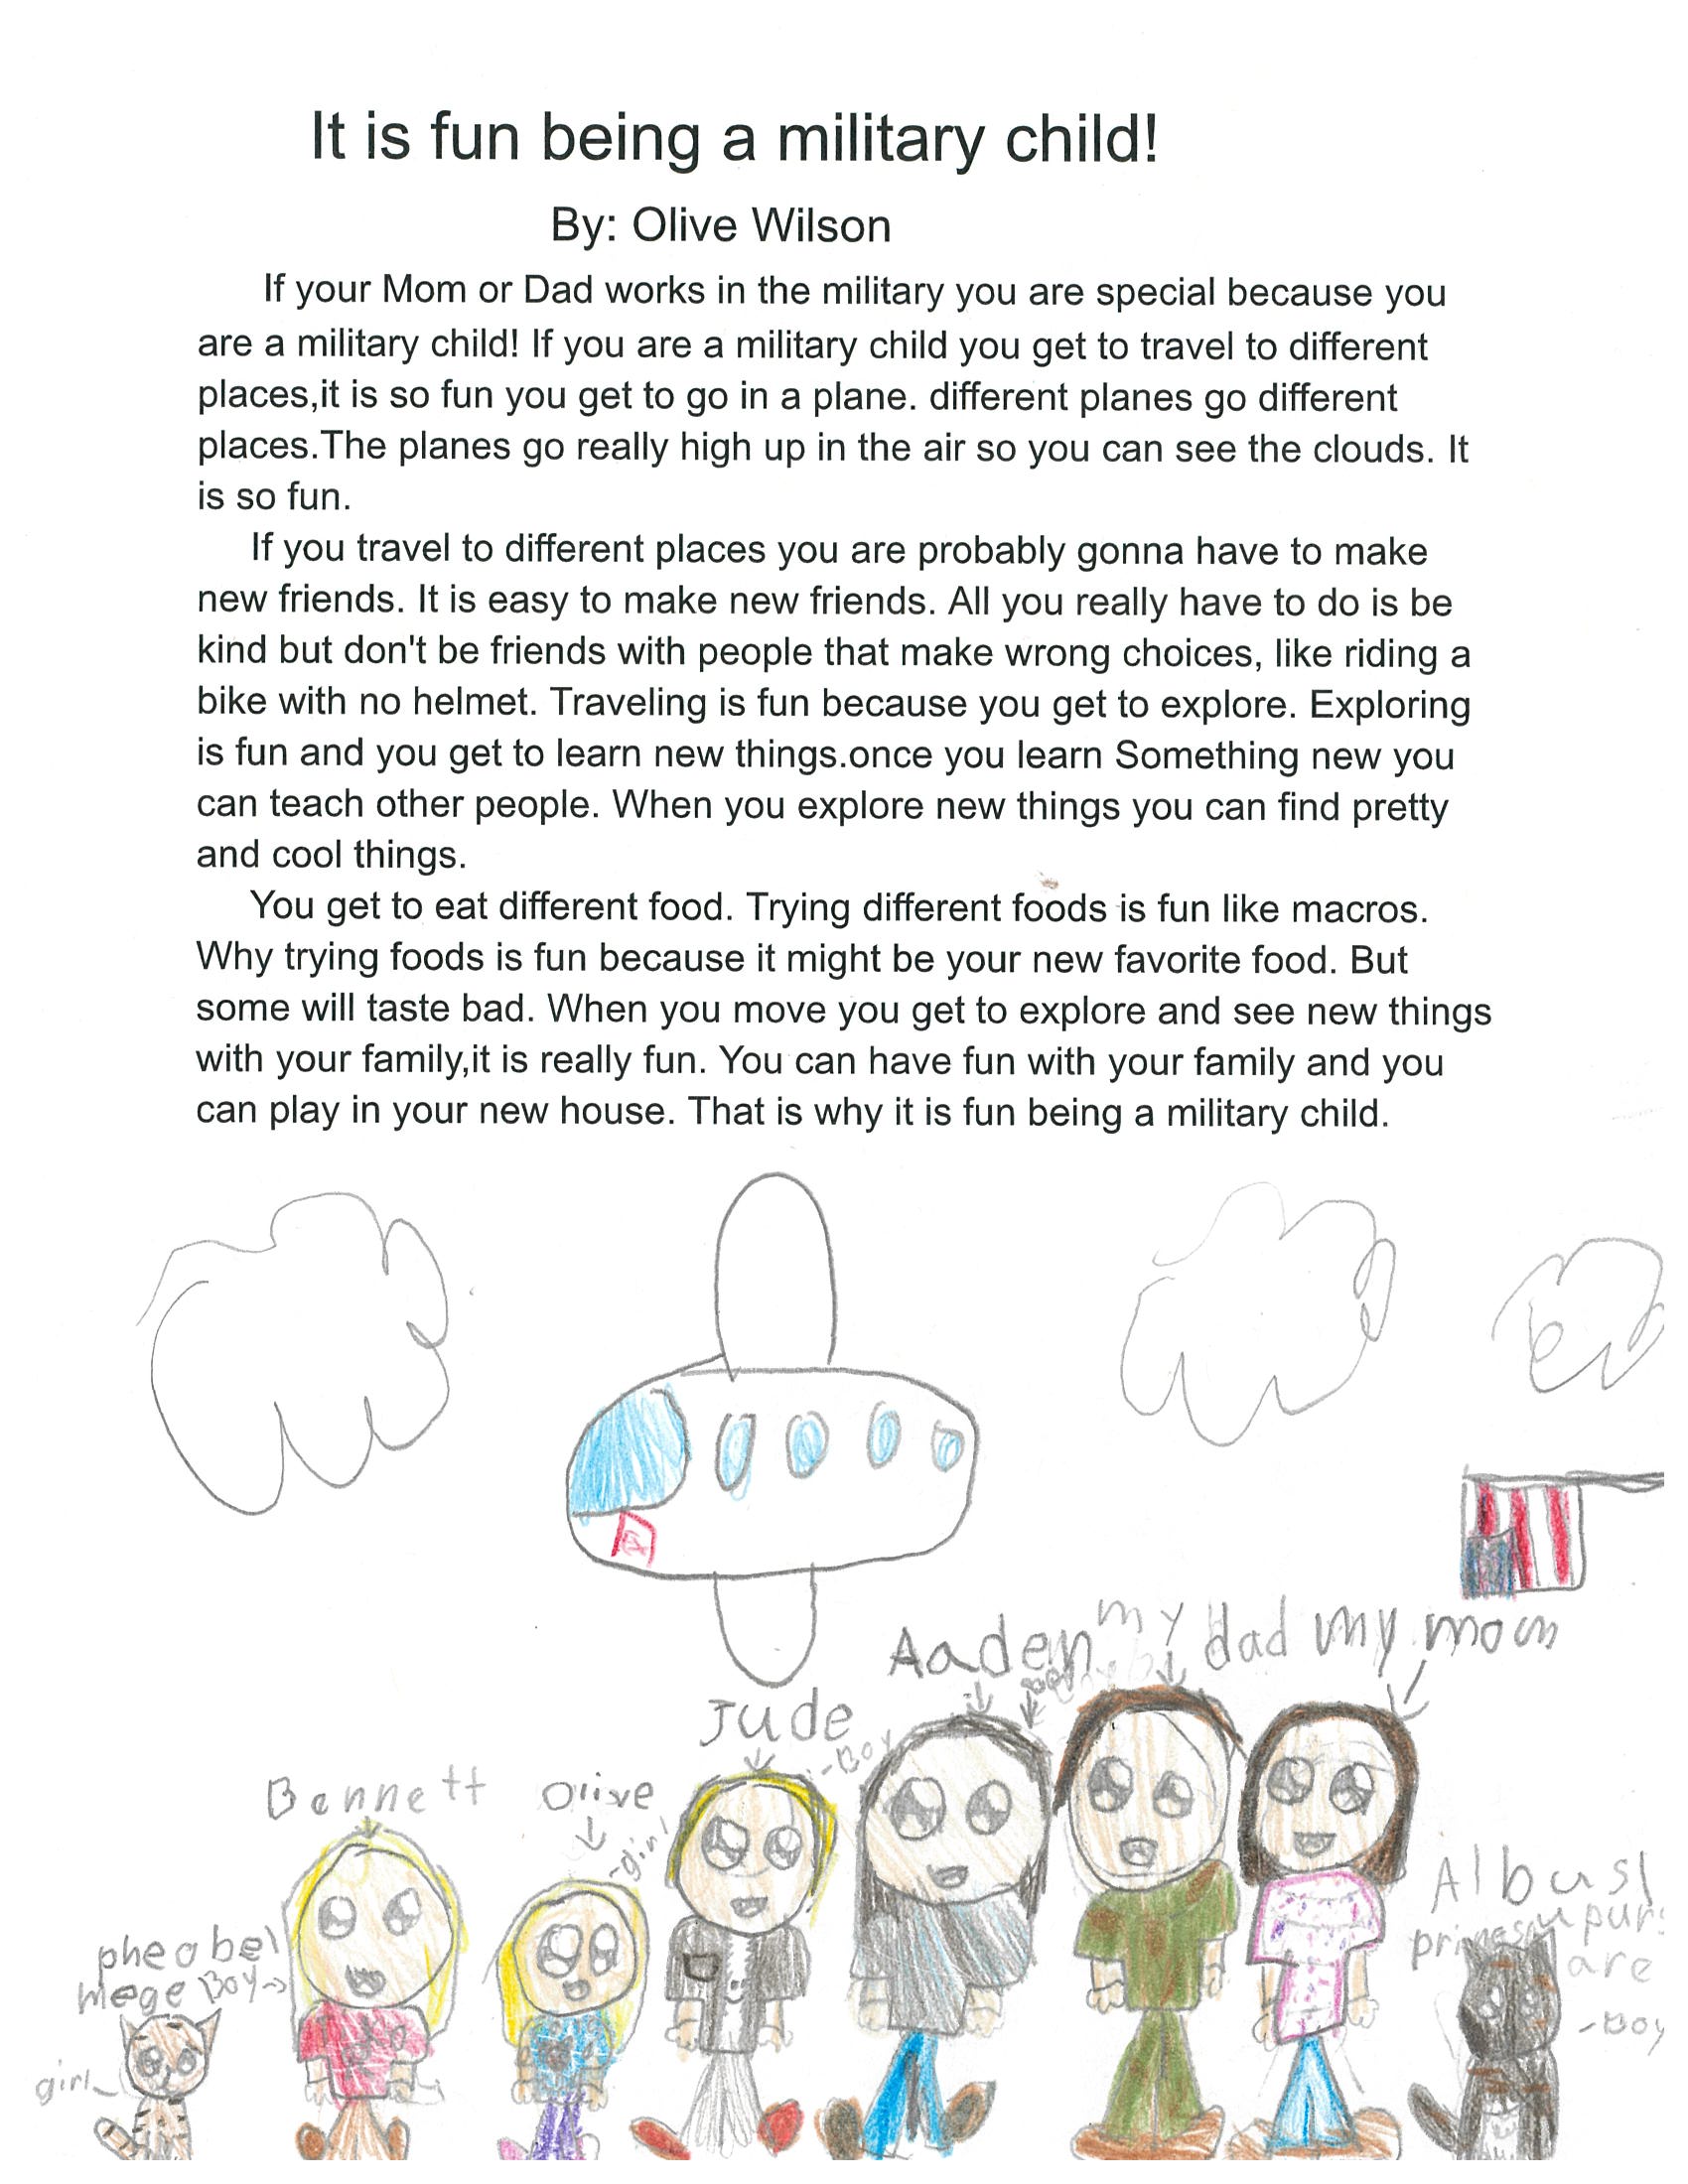 It is fun being a military child!
By: Olive Wilson
If your Mom or Dad works in the military you are special because you
are a military child! If you are a military child you get to travel to different
places,it is so fun you get to go in a plane. different planes go different
places.The planes go really high up in the air so you can see the clouds. It
is so fun.
If you travel to different places you are probably gonna have to make
new friends. It is easy to make new friends. All you really have to do is be
kind but don't be friends with people that make wrong choices, like riding a
bike with no helmet. Traveling is fun because you get to explore. Exploring
is fun and you get to learn new things.once you learn Something new you
can teach other people. When you explore new things you can find pretty
and cool things.
You get to eat different food. Trying different foods is fun like macros.
Why trying foods is fun because it might be your new favorite food. But
some will taste bad. When you move you get to explore and see new things
with your family,it is really fun. You can have fun with your family and you
can play in your new house. That is why it is fun being a military child.
my dad my mom
Aaden
Jude
-Boy
Bennett
Olive
-girl
Albus
pheobe
mege
Boy→
are
-Boy
girl-